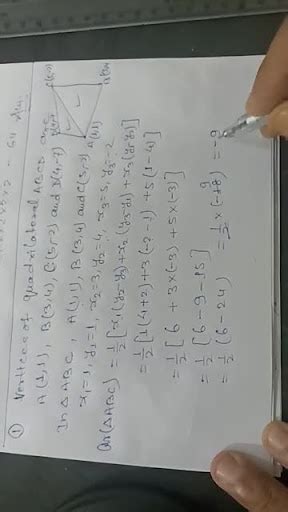 ① Vertices of quadrilateral ABCD are
A(1,1), B(3,4), C(5,-2) and D(4,-7)
In ΔABC, A(1,1), B(3,4) and C(5,-2)
x₁=1, y₁=1, x₂=3, y₂=4, x₃=5, y₃=-2
A(1,1)
ar(ΔABC) = 1/2 [x₁(y₂-y₃)+x₂(y₃-y₁)+x₃(y₁-y₂)]
= 1/2 [1(4+2)+3(-2-1)+5(1-4)]
= 1/2 [6 + 3×(-3) + 5×(-3)]
= 1/2 [6-9-15]
= 1/2 (6-24) = 1/2 × (-18) = -9
9